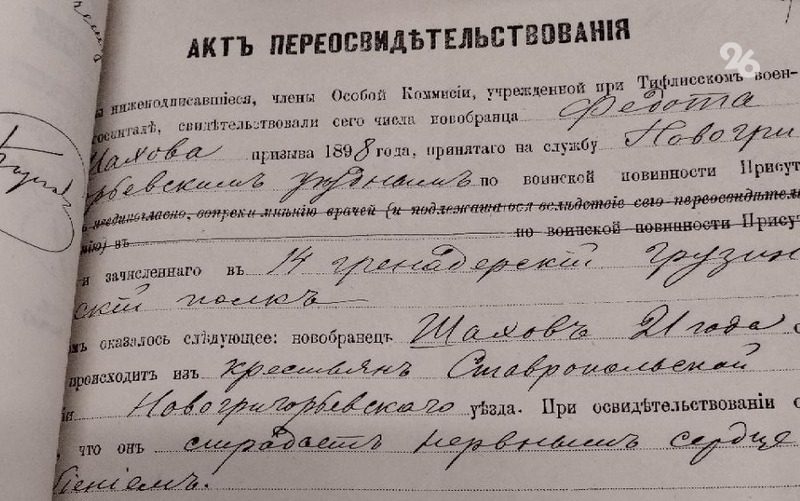 26
АКТЪ ПЕРЕОСВИДѢТЕЛЬСТВОВАНІЯ
ы нижеподписавшіеся, члены Особой Коммисіи, учрежденной при Тифлисскомъ воен-
госпиталѣ, свидѣтельствовали сего числа новобранца Федота
Шахова призыва 1898 года, принятаго на службу Новогри
горьевскимъ уѣзднымъ по воинской повинности Присут
ъ неединогласно, вопреки мнѣнію врачей (и подлежащаося вслѣдствіе сего переосвидѣтель
нію) въ по воинской повинности Присут
и зачисленнаго въ 14 гренадерскій Грузин
скій полкъ
мъ оказалось слѣдующее: новобранецъ Шаховъ 21 года с
происходитъ изъ крестьянъ Ставропольской
іи Новогригорьевскаго уѣзда. При освидѣтельствованіи о
что онъ страдаетъ нервнымъ сердце
біеніемъ.